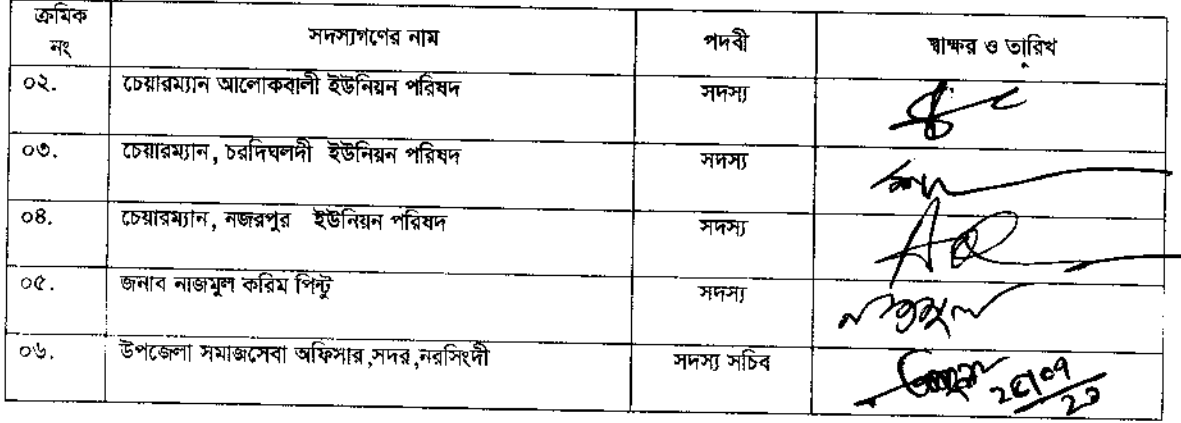 ক্রমিক নং সদস্যগণের নাম পদবী স্বাক্ষর ও তারিখ
০২. চেয়ারম্যান আলোকবালী ইউনিয়ন পরিষদ সদস্য
০৩. চেয়ারম্যান, চরদিঘলদী ইউনিয়ন পরিষদ সদস্য
০৪. চেয়ারম্যান, নজরপুর ইউনিয়ন পরিষদ সদস্য
০৫. জনাব নাজমুল করিম পিন্টু সদস্য
০৬. উপজেলা সমাজসেবা অফিসার,সদর,নরসিংদী সদস্য সচিব